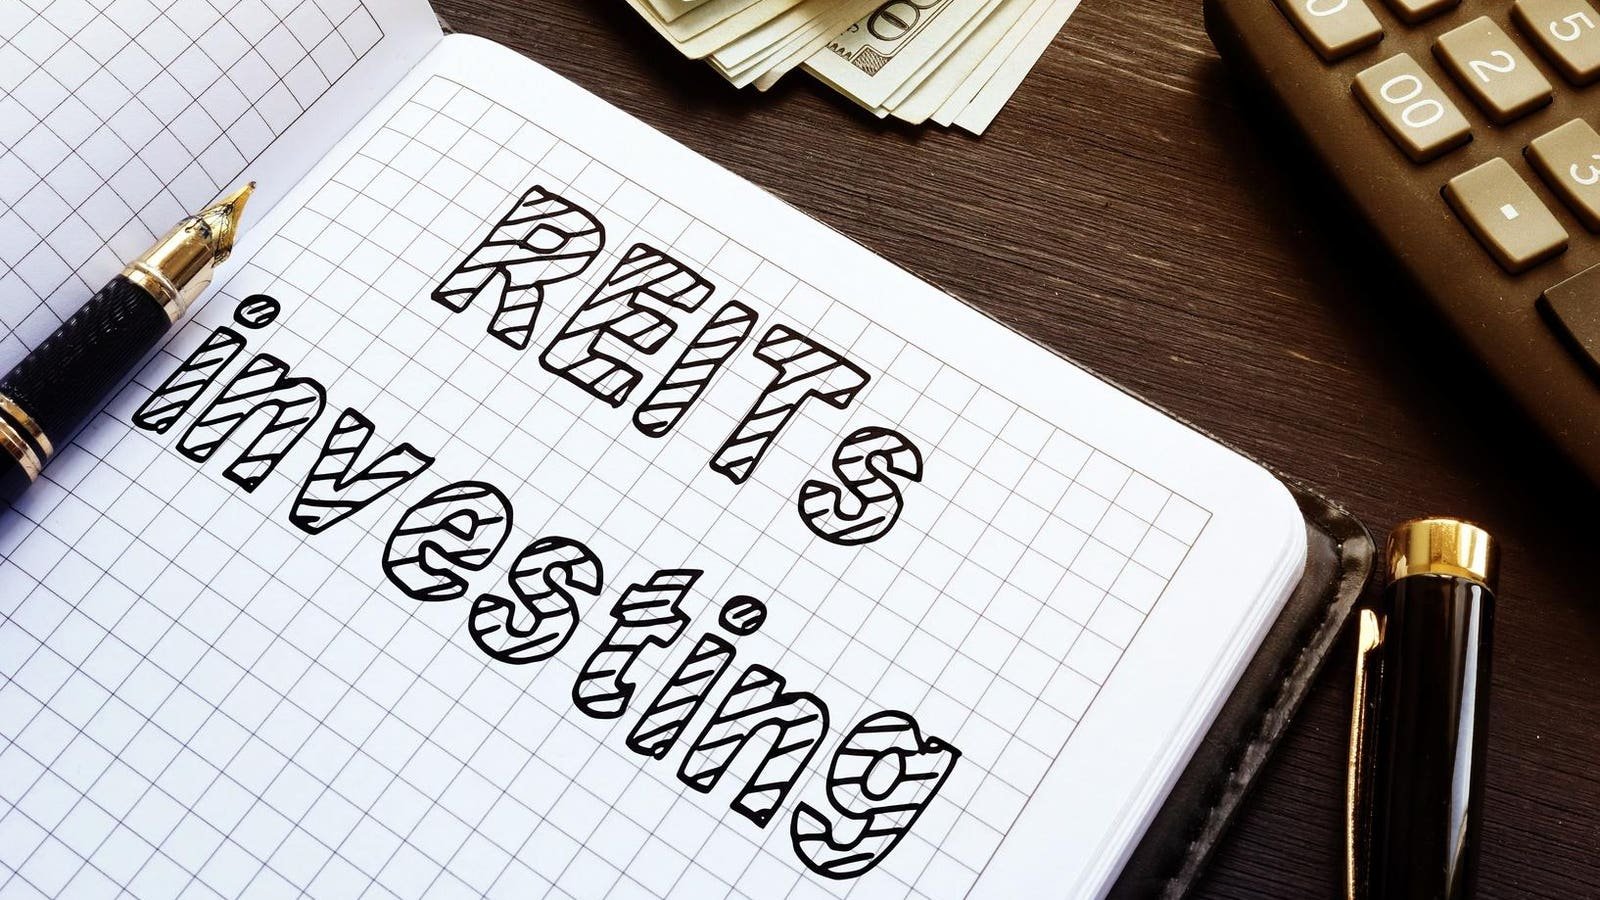 REITs
investing
00
0
00
2
5
3
.